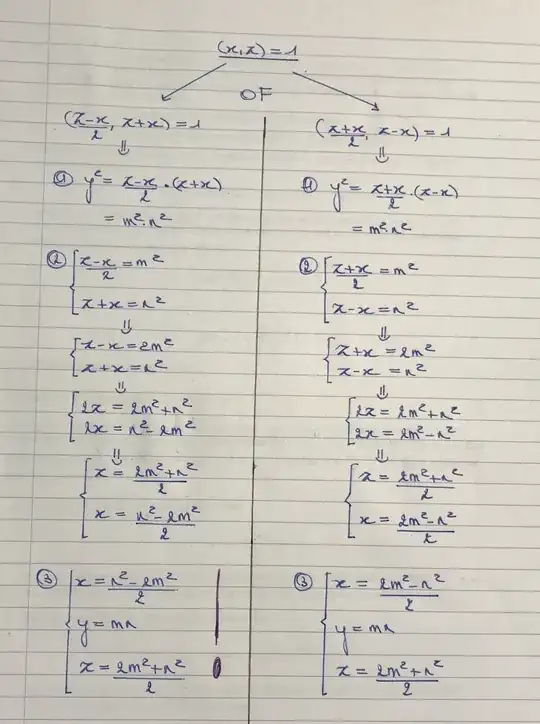 (x,z)=1
OF
(z-x/2, z+x)=1
⇓
① y²= z-x/2 ·(z+x)
= m²·n²
② { z-x/2 = m²
z+x = n²
⇓
{ z-x = 2m²
z+x = n²
⇓
{ 2z = 2m²+n²
2x = n²-2m²
⇓
{ z = 2m²+n²/2
x = n²-2m²/2
③ { x = n²-2m²/2
y = mn
z = 2m²+n²/2
(z+x/2, z-x)=1
⇓
① y²= z+x/2 ·(z-x)
= m²·n²
② { z+x/2 = m²
z-x = n²
⇓
{ z+x = 2m²
z-x = n²
⇓
{ 2z = 2m²+n²
2x = 2m²-n²
⇓
{ z = 2m²+n²/2
x = 2m²-n²/2
③ { x = 2m²-n²/2
y = mn
z = 2m²+n²/2